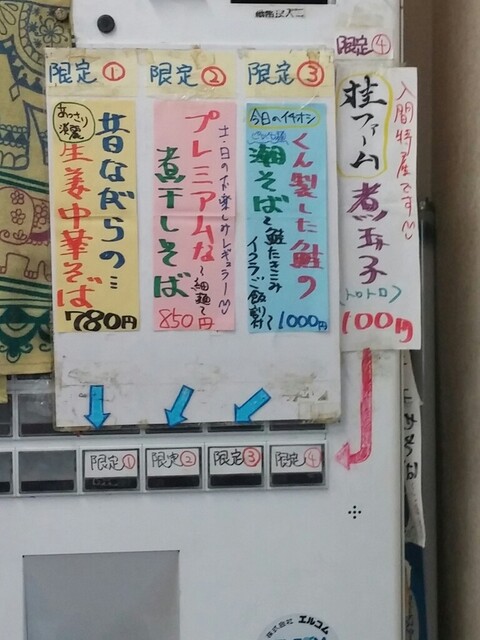 限定①
あっさり
昔ながらの…
生姜中華そば
780円
限定②
土・日のお楽しみレギュラー
プレミアムな
～細麺～
煮干しそば
850円
限定③
今日のイチオシ
くん製した鮭の
潮そば
～鮭たきこみ
イクラご飯付～
1000円
限定④
入間特産です
桂ファーム
煮玉子
トロトロ
100円
限定①
限定②
限定③
限定④
株式会社 エルコム